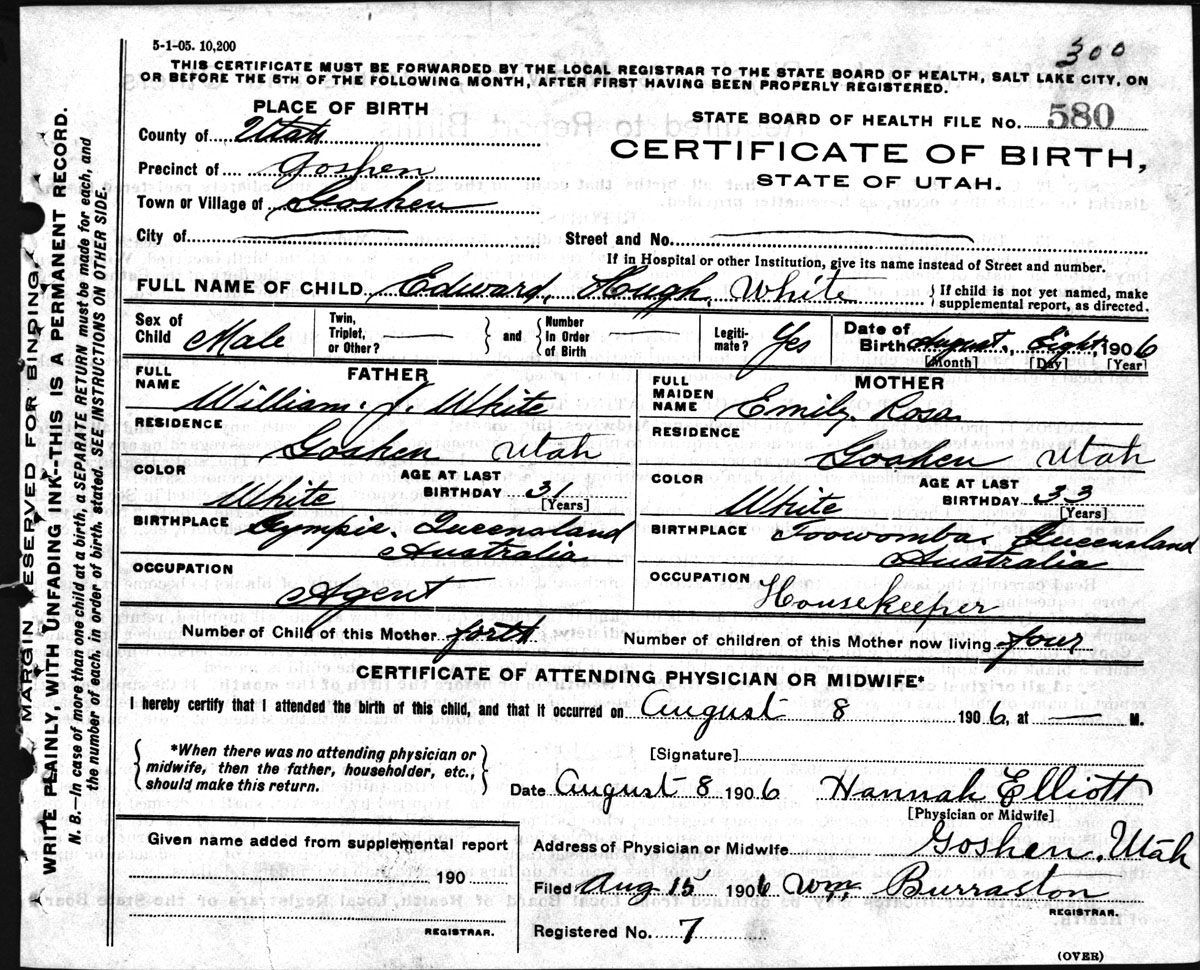 5-1-05. 10,200
300
THIS CERTIFICATE MUST BE FORWARDED BY THE LOCAL REGISTRAR TO THE STATE BOARD OF HEALTH, SALT LAKE CITY, ON
OR BEFORE THE 5TH OF THE FOLLOWING MONTH, AFTER FIRST HAVING BEEN PROPERLY REGISTERED.
PLACE OF BIRTH
STATE BOARD OF HEALTH FILE No. 580
County of Utah
CERTIFICATE OF BIRTH,
Precinct of Goshen
STATE OF UTAH.
Town or Village of Goshen
City of
Street and No.
If in Hospital or other Institution, give its name instead of Street and number.
FULL NAME OF CHILD Edward Hugh White
{If child is not yet named, make
supplemental report, as directed.
Sex of Child Male
Twin, Triplet, or Other?
and
Number In Order of Birth
Legiti-mate? Yes
Date of Birth August, Eight, 1906
[Month] [Day] [Year]
FATHER
FULL NAME William J. White
RESIDENCE Goshen Utah
COLOR White
AGE AT LAST BIRTHDAY 31
[Years]
BIRTHPLACE Gympie. Queensland
Australia
OCCUPATION Agent
MOTHER
FULL MAIDEN NAME Emily Rosa
RESIDENCE Goshen Utah
COLOR White
AGE AT LAST BIRTHDAY 33
[Years]
BIRTHPLACE Toowomba Queensland
Australia
OCCUPATION Housekeeper
Number of Child of this Mother forth
Number of children of this Mother now living four
CERTIFICATE OF ATTENDING PHYSICIAN OR MIDWIFE*
I hereby certify that I attended the birth of this child, and that it occurred on August 8 1906, at — M.
*When there was no attending physician or
midwife, then the father, householder, etc.,
should make this return.
[Signature]
Date August 8 1906 Hannah Elliott
[Physician or Midwife]
Given name added from supplemental report
190
REGISTRAR.
Address of Physician or Midwife Goshen. Utah
Filed Aug 15 1906 Wm. Burraston
REGISTRAR.
Registered No. 7
(OVER)
MARGIN RESERVED FOR BINDING.
WRITE PLAINLY, WITH UNFADING INK--THIS IS A PERMANENT RECORD.
N. B.—In case of more than one child at a birth, a SEPARATE RETURN must be made for each, and
the number of each, in order of birth, stated. SEE INSTRUCTIONS ON OTHER SIDE.